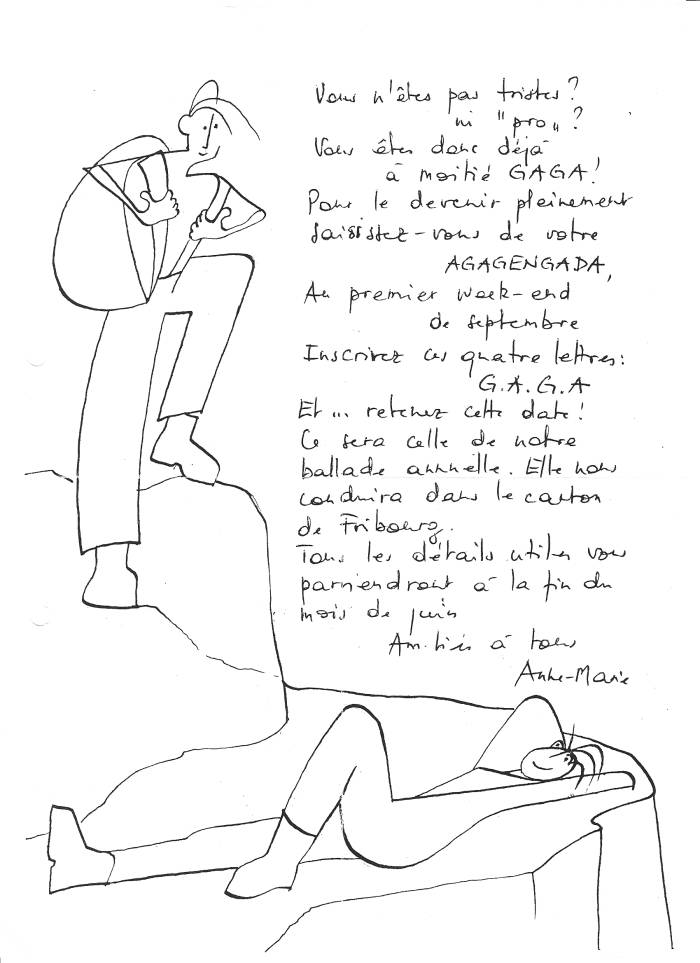 Vous n'êtes pas tristes?
ni "pro"?
Vous êtes donc déjà
à moitié GAGA!
Pour le devenir pleinement
saisistez-vous de votre
AGAGENGADA,
Au premier week-end
de septembre
Inscrivez ces quatre lettres:
G.A.G.A
Et ... retenez cette date!
Ce sera celle de notre
ballade annuelle. Elle nous
conduira dans le canton
de Fribourg.
Tous les détails utiles vous
parviendront à la fin du
mois de juin
Amitiés à tous
Anne-Marie